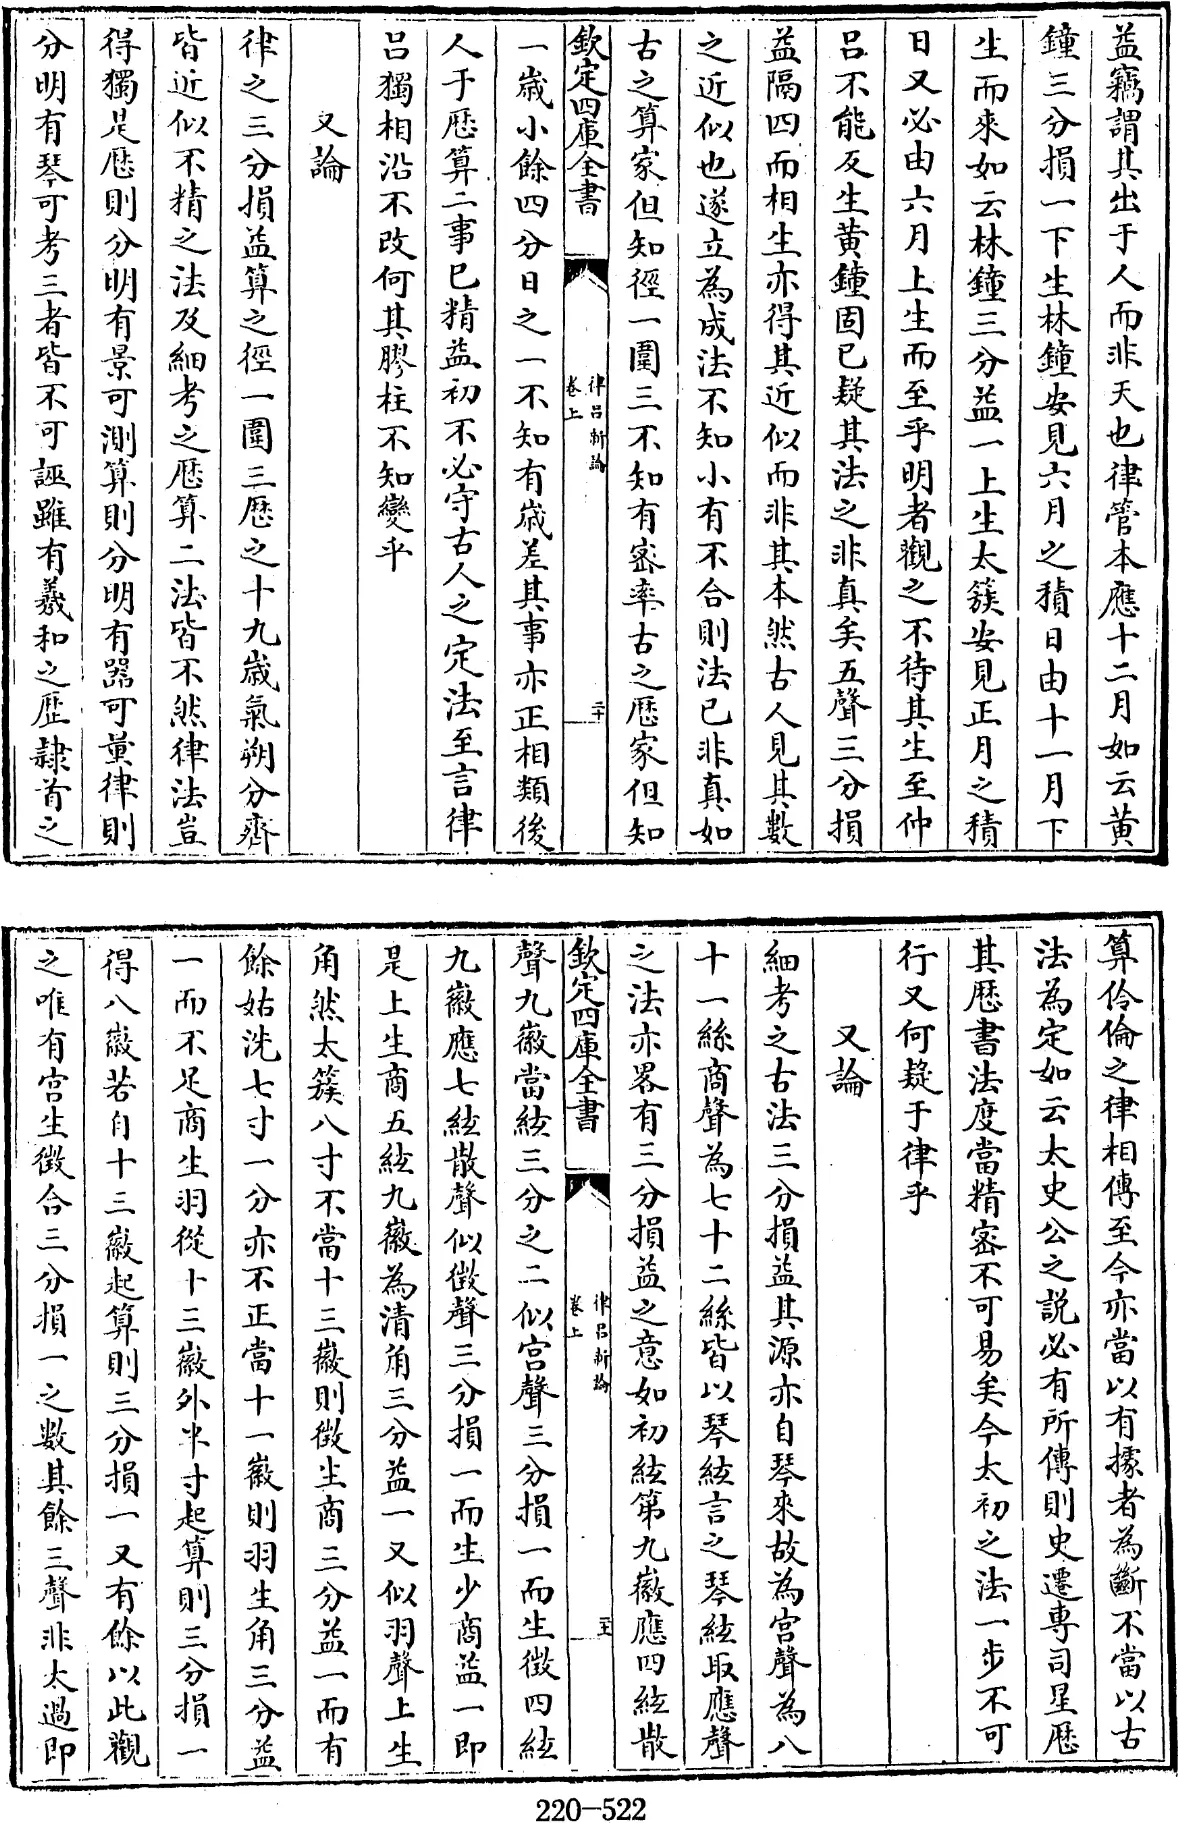 益竊謂其出于人而非天也律管本應十二月如云黄
鐘三分損一下生林鐘安見六月之積日由十一月下
生而來如云林鐘三分益一上生太簇安見正月之積
日又必由六月上生而至乎明者觀之不待其生至仲
吕不能反生黄鐘固已疑其法之非真矣五聲三分損
益隔四而相生亦得其近似而非其本然古人見其數
之近似也遂立為成法不知小有不合則法已非真如
古之算家但知徑一圍三不知有宻率古之厯家但知
欽定四庫全書
律吕新論
卷上
二十
一歳小餘四分日之一不知有歳差其事亦正相類後
人于厯算二事已精益初不必守古人之定法至言律
吕獨相沿不改何其膠柱不知變乎
又論
律之三分損益算之徑一圍三厯之十九歳氣朔分齊
皆近似不精之法及細考之厯算二法皆不然律法豈
得獨是厯則分明有景可測算則分明有器可量律則
分明有琴可考三者皆不可誣雖有羲和之歴隷首之
算伶倫之律相傳至今亦當以有據者為斷不當以古
法為定如云太史公之説必有所傳則史遷專司星厯
其厯書法度當精宻不可易矣今太初之法一步不可
行又何疑于律乎
又論
細考之古法三分損益其源亦自琴來故為宫聲為八
十一絲商聲為七十二絲皆以琴絃言之琴絃取應聲
之法亦畧有三分損益之意如初絃第九徽應四絃散
欽定四庫全書
律吕新論
卷上
二十一
聲九徽當絃三分之二似宫聲三分損一而生徴四絃
九徽應七絃散聲似徴聲三分損一而生少商益一即
是上生商五絃九徽為清角三分益一又似羽聲上生
角然太簇八寸不當十三徽則徴生商三分益一而有
餘姑洗七寸一分亦不正當十一徽則羽生角三分益
一而不足商生羽從十三徽外半寸起算則三分損一
得八徽若自十三徽起算則三分損一又有餘以此觀
之唯有宫生徴合三分損一之數其餘三聲非太過即
220-522